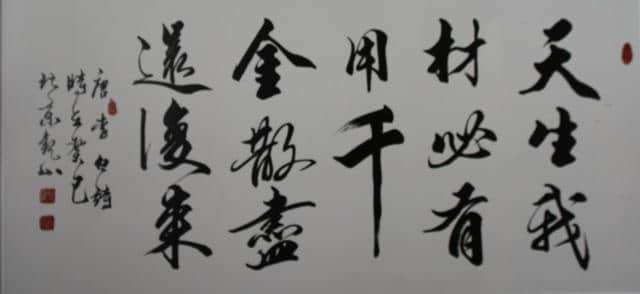 天生我
材必有
用千
金散盡
還復來
唐李白詩
時在癸巳